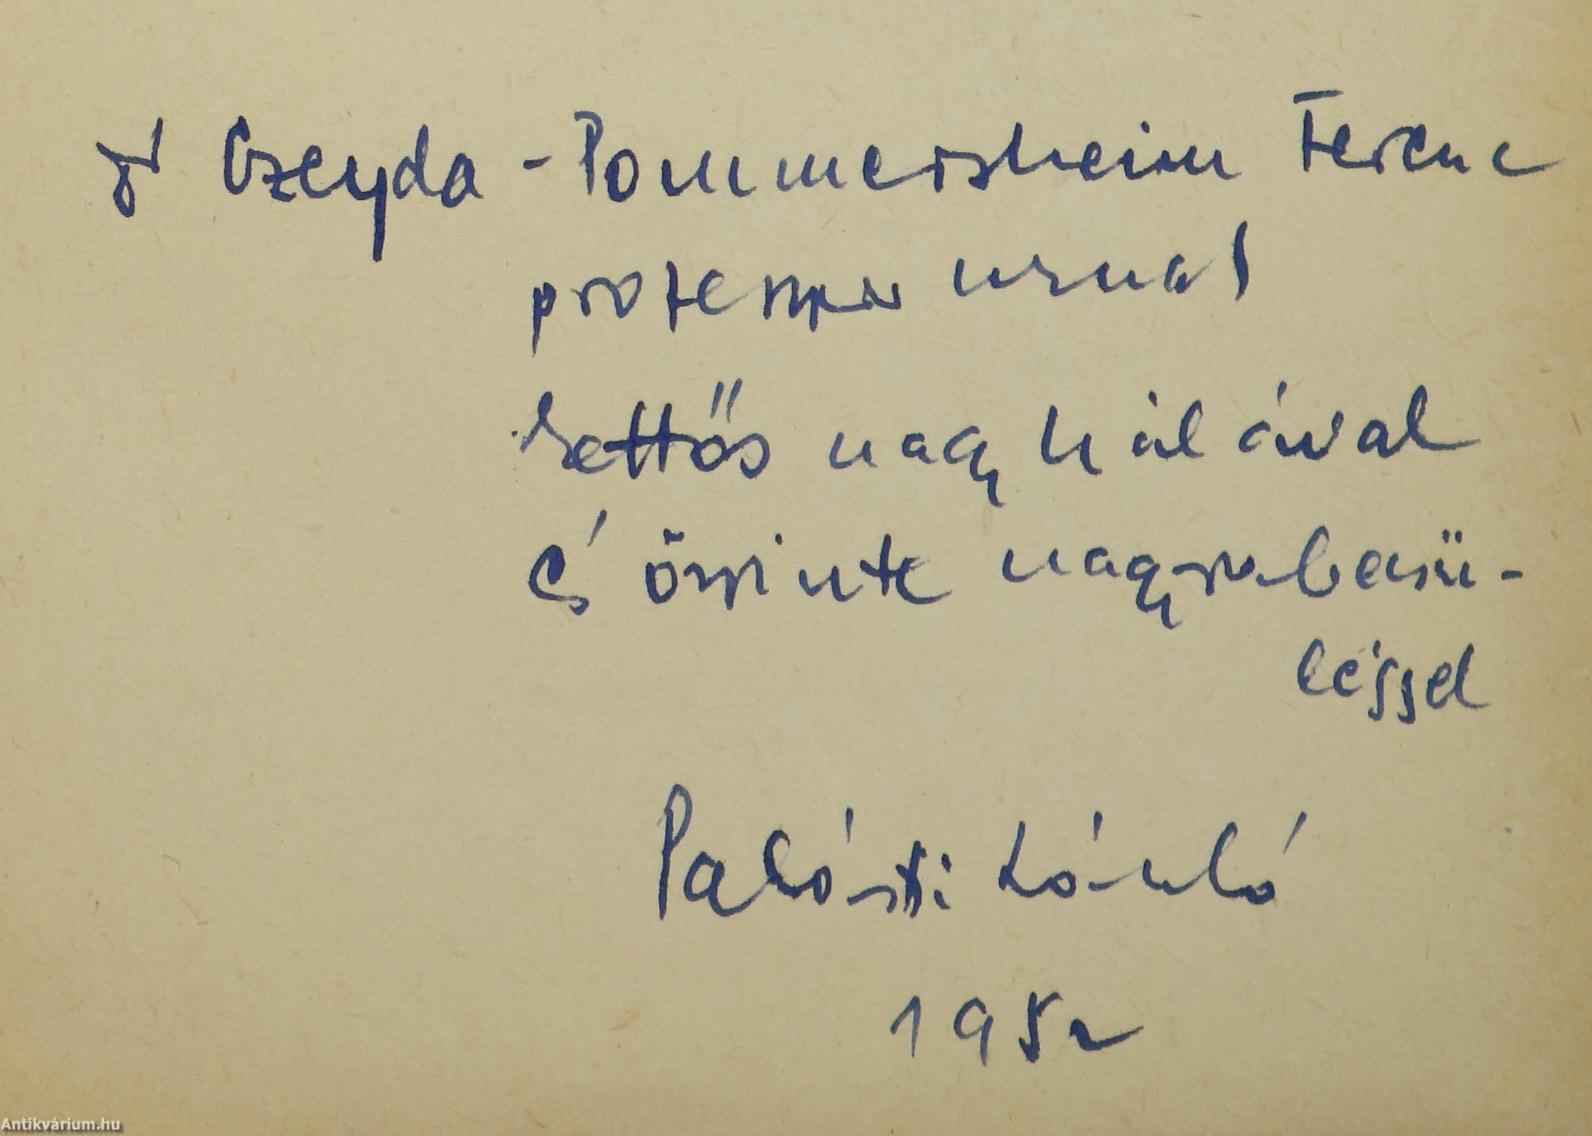 dr Czeyda-Pommersheim Ferenc
professzor urnak
kettős nagy hálával
és őszinte nagyrabecsü-
léssel
Palócsi László
1982
Antikvárium.hu